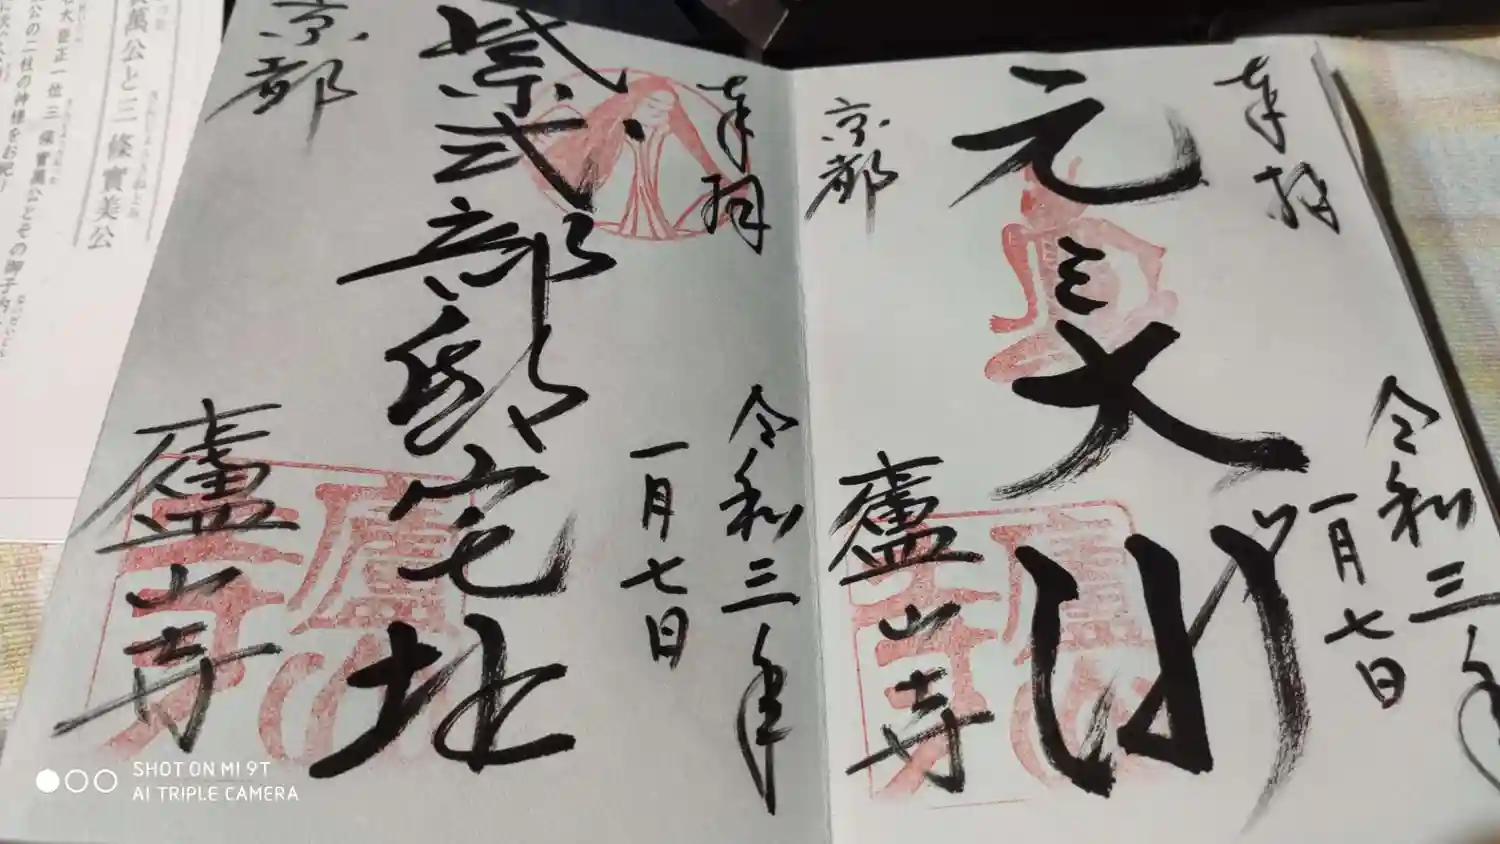 奉拝
令和三年
一月七日
元三大师
京都
廬山寺
奉拝
令和三年
一月七日
紫式部邸宅址
京都
廬山寺
萬公と三條實美公
大臣正一位三條實萬公とその御子内
公の二柱の神様をお祀り
SHOT ON MI 9T
AI TRIPLE CAMERA